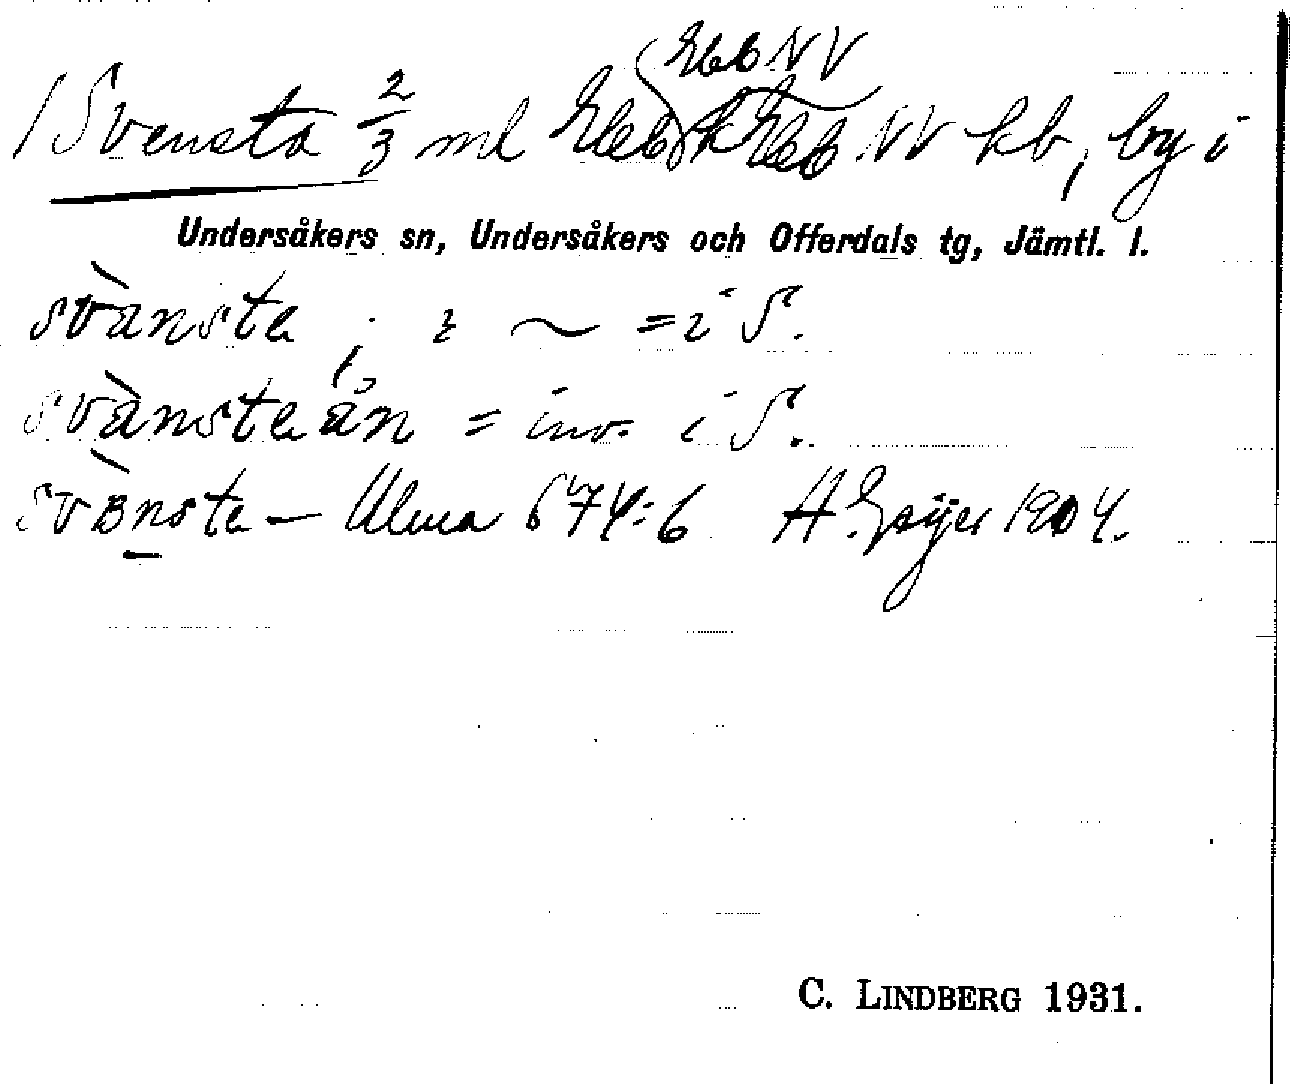 Svensta 2/3 ml NV kb, by i
Undersåkers sn, Undersåkers och Offerdals tg, Jämtl. l.
svànsta, i ~ = i S.
svànstaån = inv. i S.
svànsta – Ulma 674:6 H. Geijer 1904.
C. LINDBERG 1931.